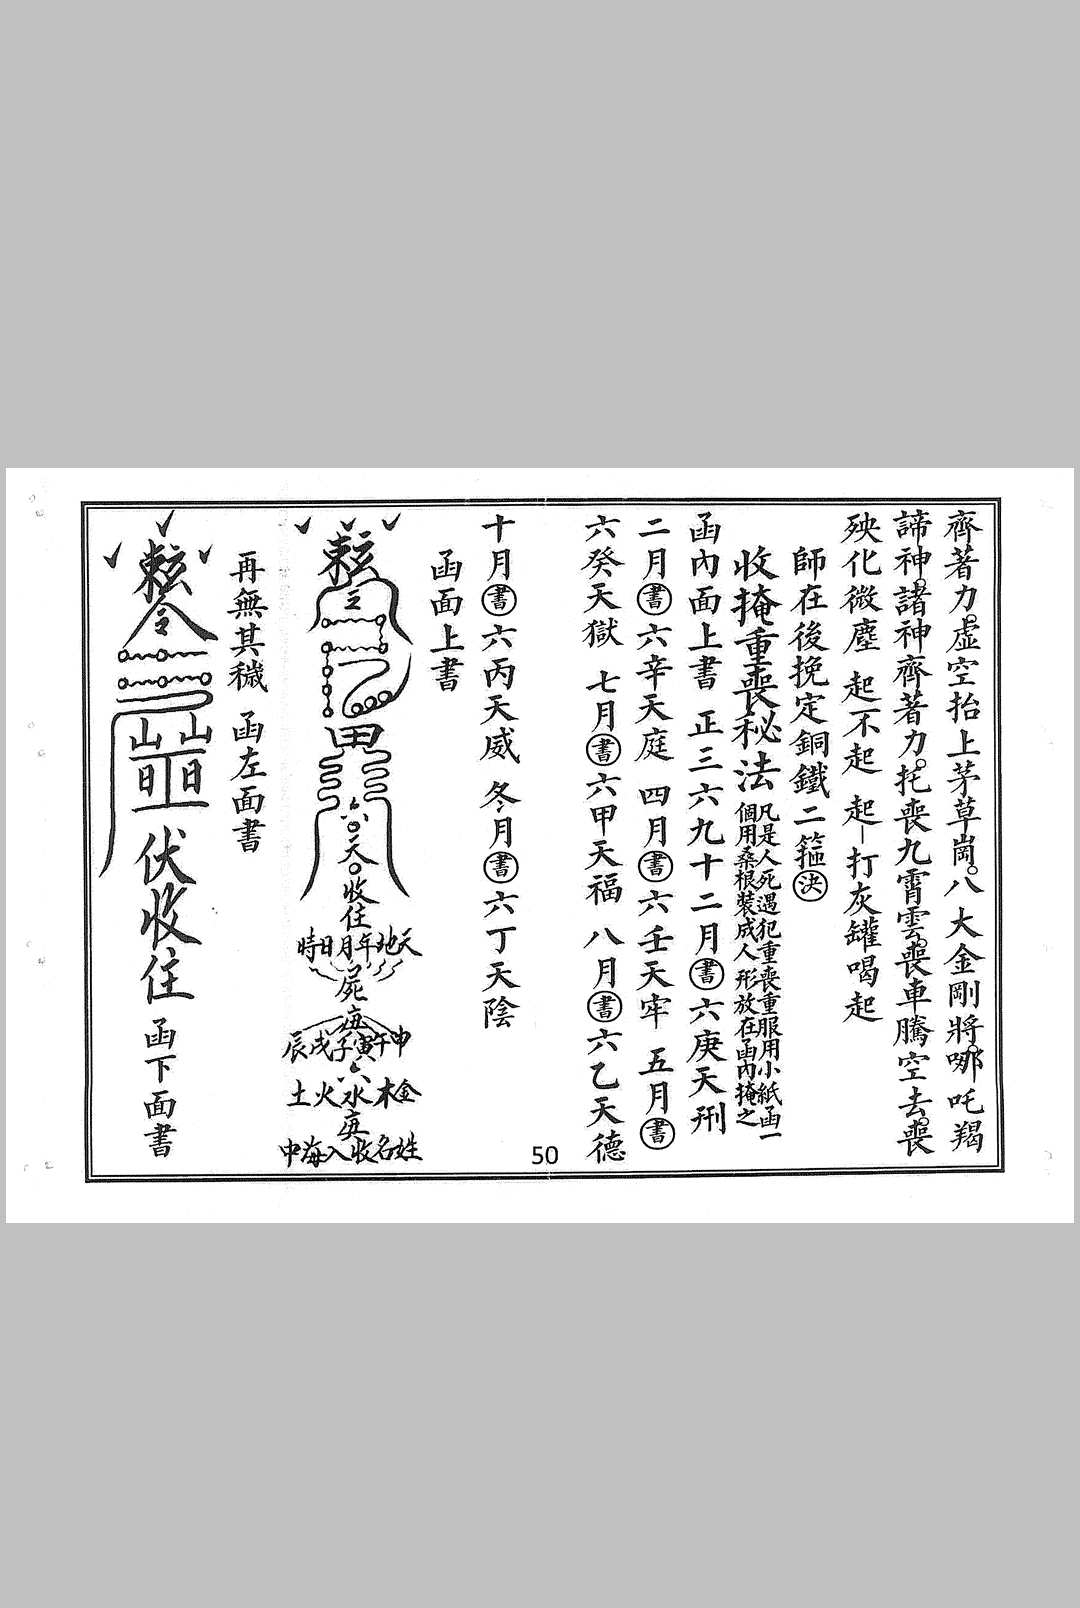 齊著力。虛空抬上茅草崗。八大金剛將。哪吒羯
諦神。諸神齊著力。托喪九霄雲。喪車騰空去。喪
殃化微塵 起一不起 起一打灰罐喝起
師在後挽定銅鐵二箍㊋決
收掩重喪秘法 凡是人死遇犯重喪重服用小紙函一
個用桑根裝成人形放在函內掩之
函內面上書 正三六九十二月書六庚天刑
二月書六辛天庭 四月書六壬天牢 五月書
六癸天獄 七月書六甲天福 八月書六乙天德
十月書六丙天威 冬月書六丁天陰
函面上書
敕令
田
天
收住
天地年月日時
屍
申午寅子戌辰
六水
金木火土
姓名收入海中
再無其穢 函左面書
敕令
山山
日日
伏收住 函下面書
50